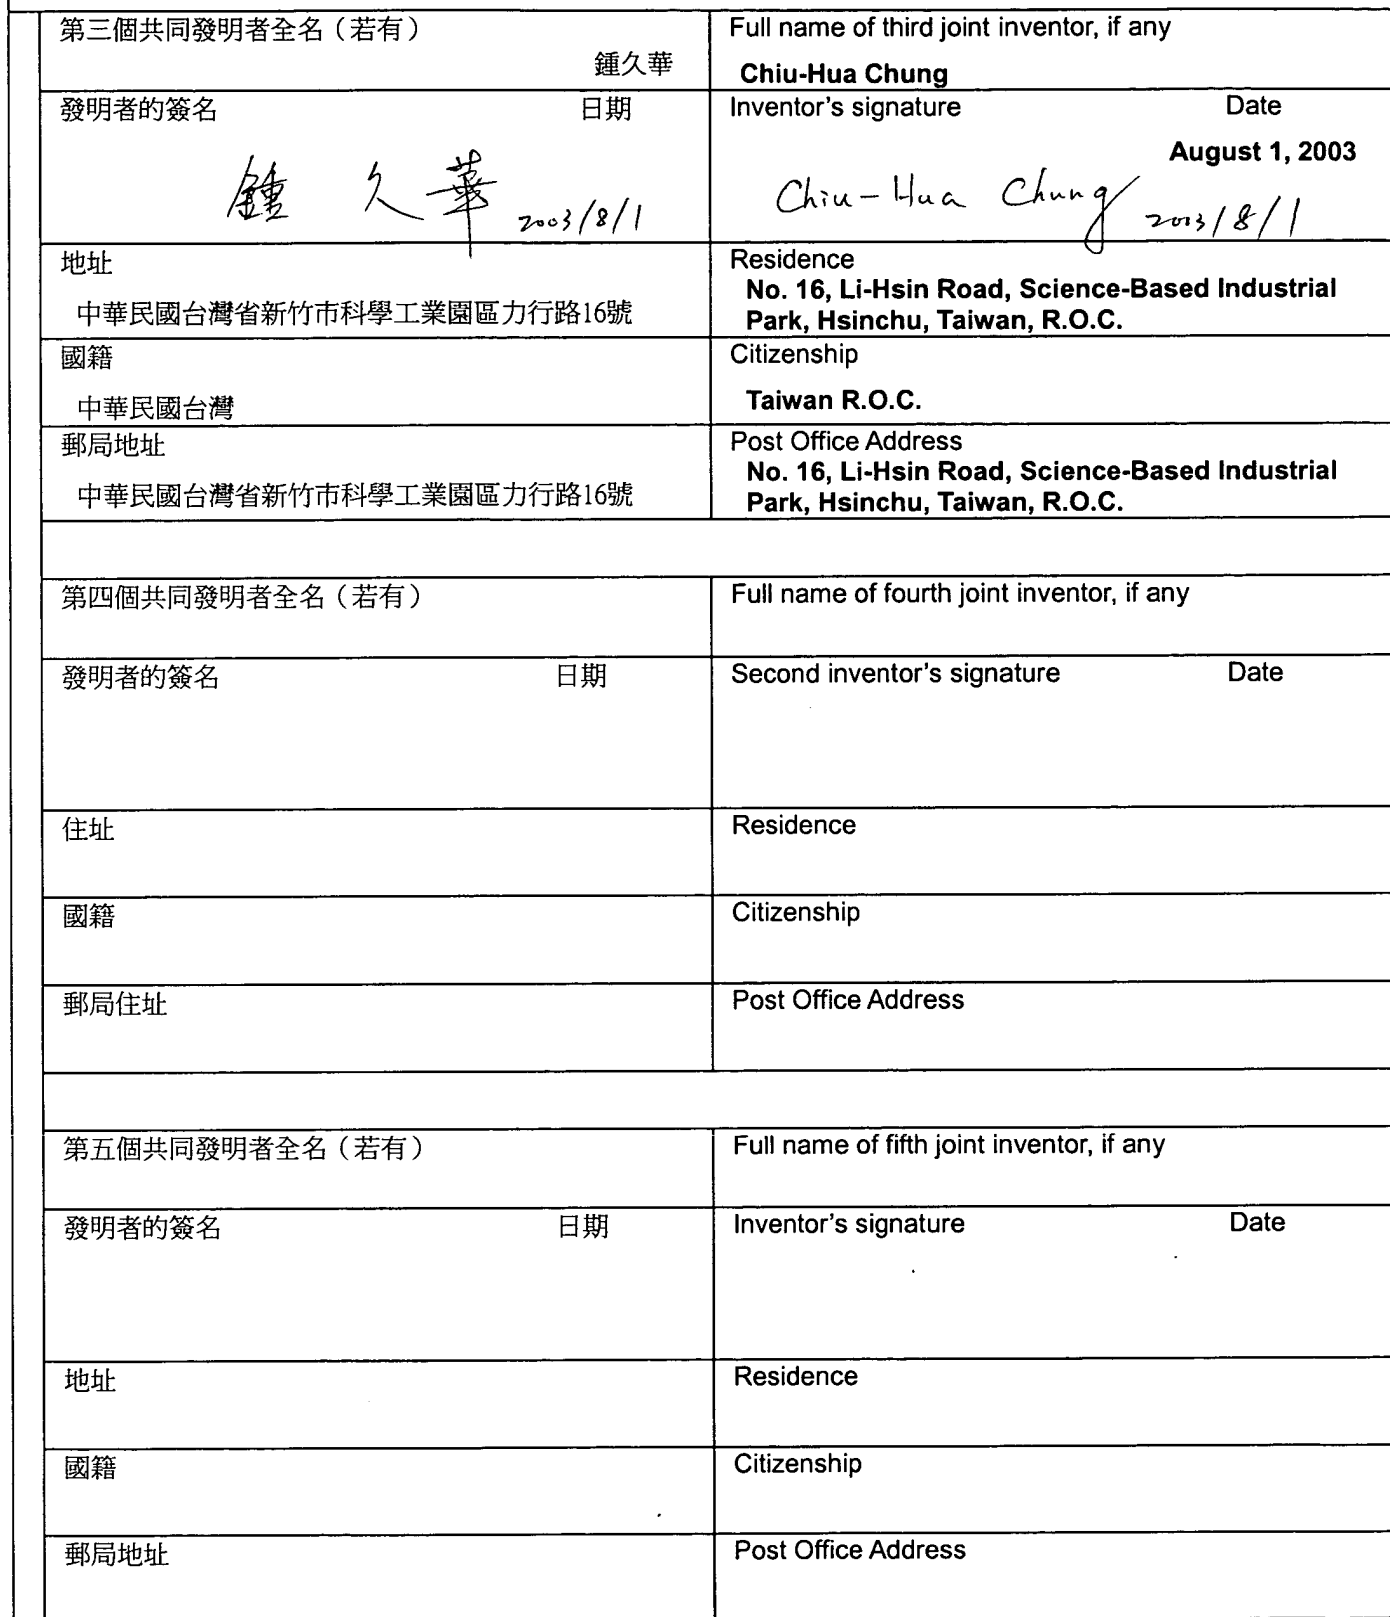 第三個共同發明者全名（若有）
鍾久華
Full name of third joint inventor, if any
Chiu-Hua Chung
發明者的簽名 日期
鍾 久 華 2003/8/1
Inventor's signature Date
August 1, 2003
Chiu-Hua Chung 2003/8/1
地址
中華民國台灣省新竹市科學工業園區力行路16號
Residence
No. 16, Li-Hsin Road, Science-Based Industrial
Park, Hsinchu, Taiwan, R.O.C.
國籍
中華民國台灣
Citizenship
Taiwan R.O.C.
郵局地址
中華民國台灣省新竹市科學工業園區力行路16號
Post Office Address
No. 16, Li-Hsin Road, Science-Based Industrial
Park, Hsinchu, Taiwan, R.O.C.
第四個共同發明者全名（若有）
Full name of fourth joint inventor, if any
發明者的簽名 日期
Second inventor's signature Date
住址
Residence
國籍
Citizenship
郵局住址
Post Office Address
第五個共同發明者全名（若有）
Full name of fifth joint inventor, if any
發明者的簽名 日期
Inventor's signature Date
地址
Residence
國籍
Citizenship
郵局地址
Post Office Address